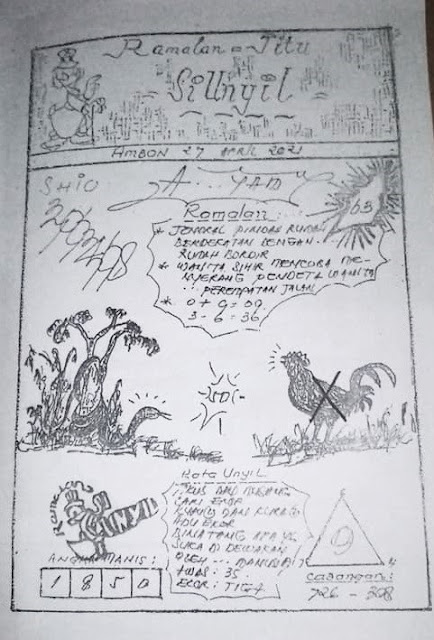 Ramalan = Jitu
Si Unyil
AMBON 27 APRIL 2021
SHIO
A... YAM
63
Ramalan:
* JENDRAL PINDAH RUMAH
BERDEKATAN DENGAN
RUMAH BORDIR
* WANITA SIHIR MENCOBA ME-
NYERANG PENDETA WANITA
PEREMPATAN JALAN
* 0 + 9 = 09
3 - 6 = 36
Kata Unyil
DAN
CARI EKOR
DAN KURA
ADU EKOR
BINATANG APA YG
SUKA DI DEWAKAN
OLEH ...
AWAS: 35
EKOR: TIGA
UNYIL
ANGKA MANIS:
1 8 5 0
9
Cadangan:
726 - 308